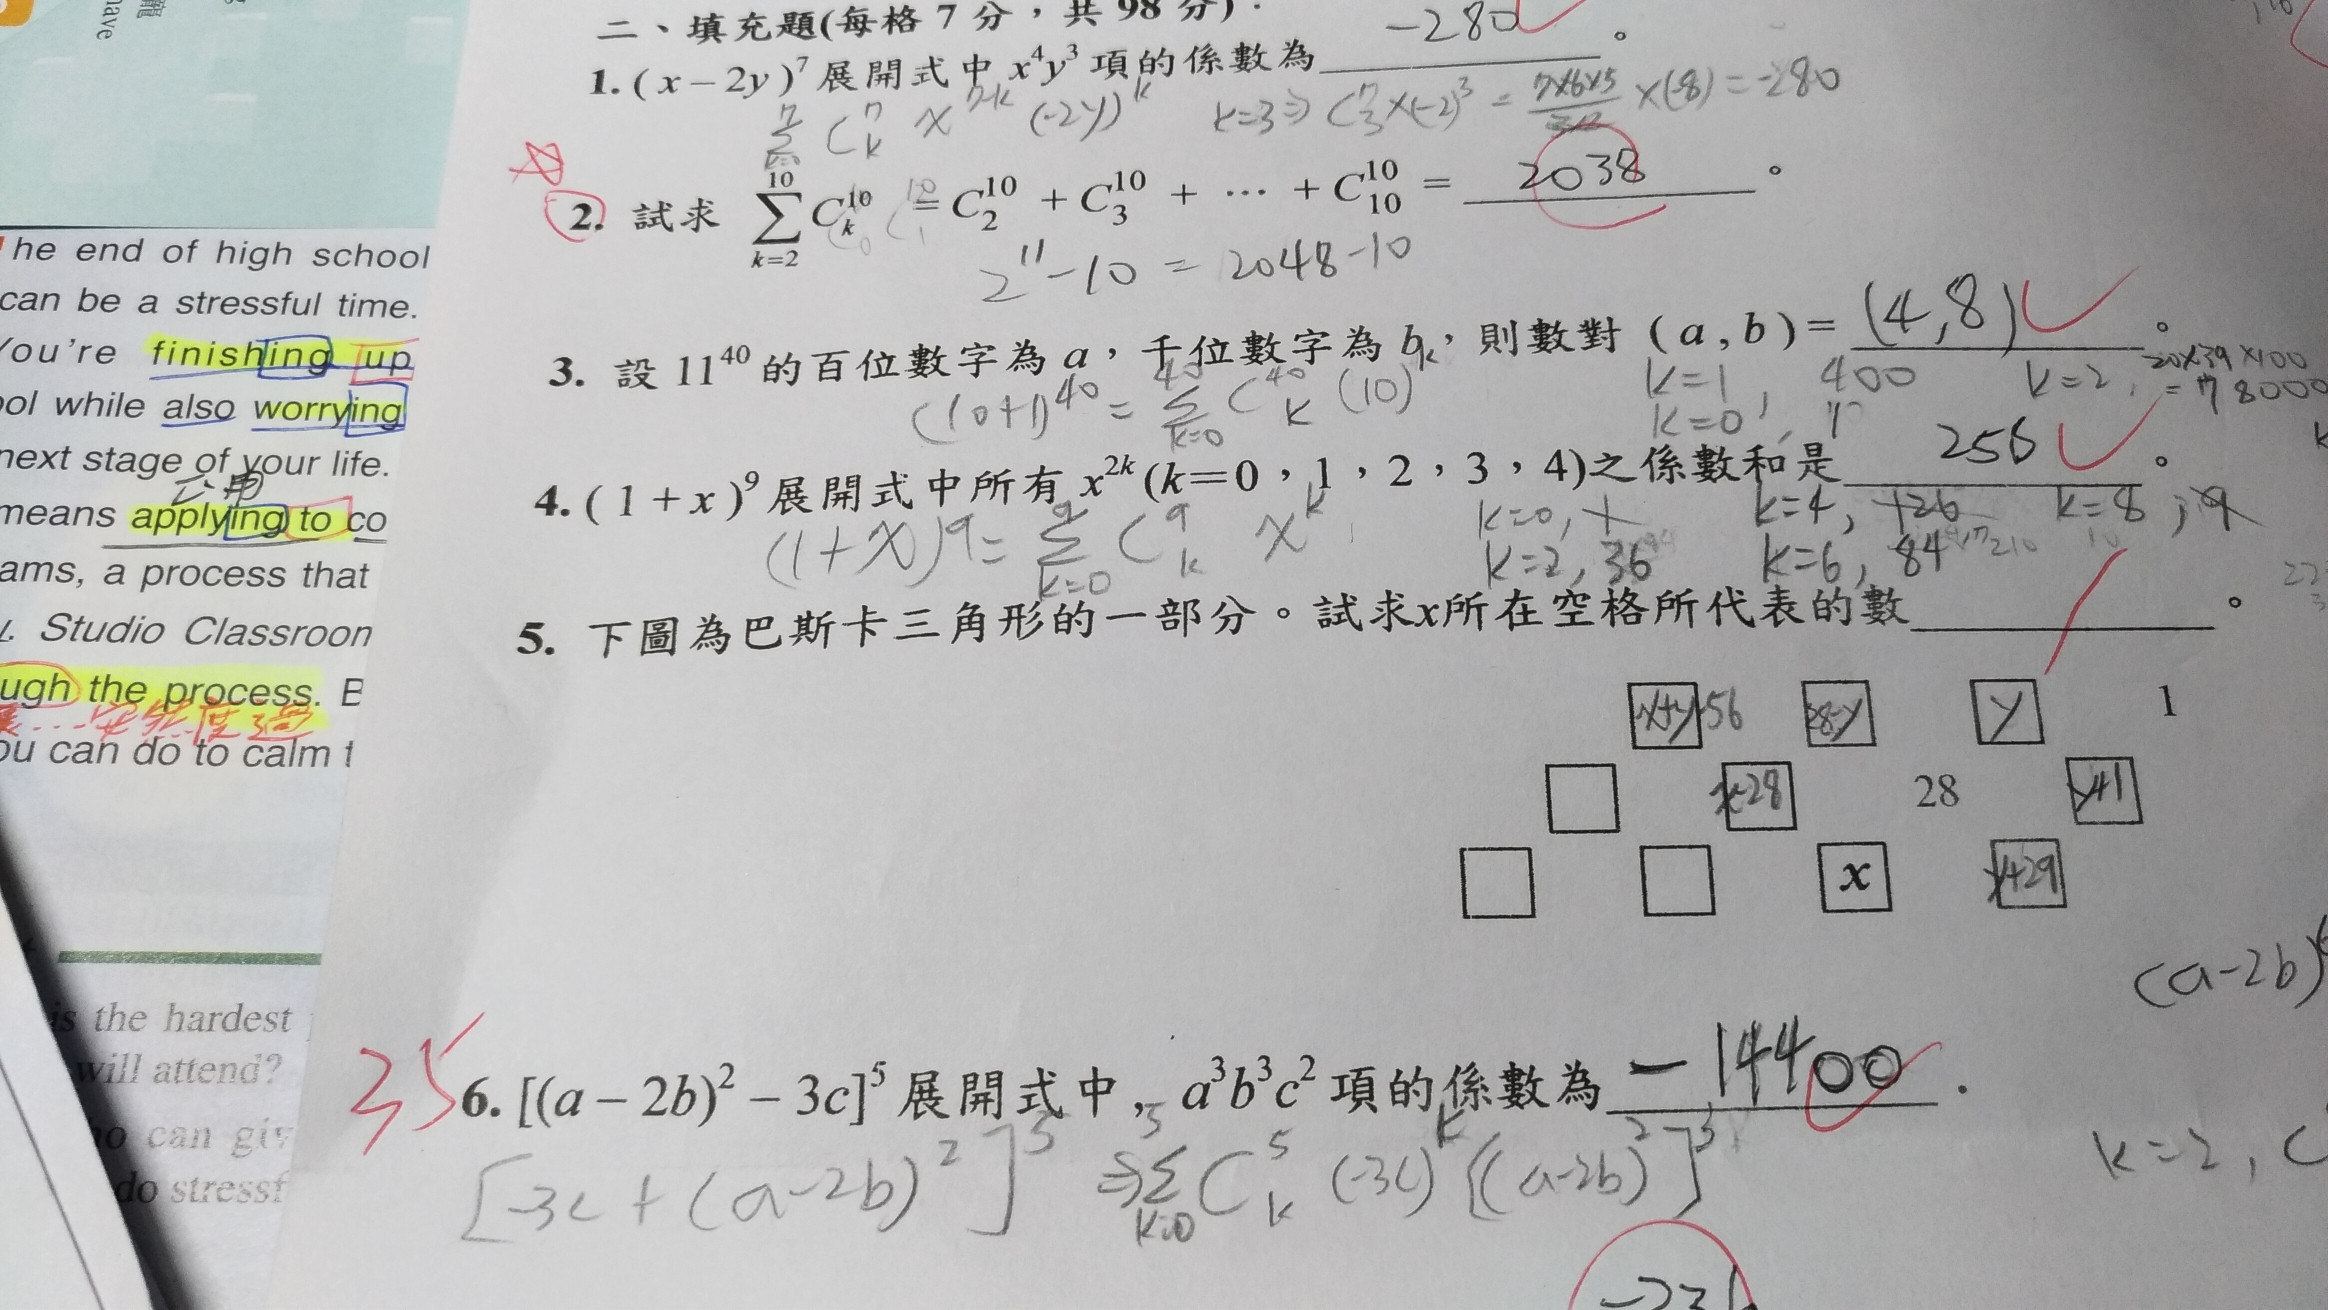 he end of high school
can be a stressful time.
You're finishing up
ool while also worrying
next stage of your life.
means applying to co
ams, a process that
y. Studio Classroon
ugh the process. B
ou can do to calm t
is the hardest
will attend?
ho can giv
do stressf
ave
二、填充題(每格 7 分，共 98 分)：
-280
1. ( x − 2y )⁷ 展開式中 x⁴y³ 項的係數為＿＿＿。
k=3⇒ C⁷₃×(-2)³ = 7×6×5 ×(-8) = -280
2. 試求 ∑_{k=2}^{10} C_k^{10} = C_2^{10} + C_3^{10} + ⋯ + C_{10}^{10} = 2038 。
2¹¹-10 = 2048-10
3. 設 11⁴⁰ 的百位數字為 a，千位數字為 b，則數對 ( a , b ) = (4,8) 。
(10+1)⁴⁰ = ∑_{k=0}^{40} C_k^{40} (10)^k
k=1, 400
k=2, 20×39×100
= 78000
k=0, 1
4. ( 1 + x )⁹ 展開式中所有 x²ᵏ (k=0，1，2，3，4)之係數和是 256 。
(1+x)⁹ = ∑_{k=0}^{9} C_k^9 x^k
k=0, 1
k=4, 126
k=8, 9
k=2, 36
k=6, 84
5. 下圖為巴斯卡三角形的一部分。試求x所在空格所代表的數＿＿＿。
x+y-56 28-y y 1
x-28 28 y+1
x y+29
(a-2b)⁶
35
6. [(a − 2b)² − 3c]⁵ 展開式中，a³b³c² 項的係數為 -14400 .
[-3c + (a-2b)²]⁵ ⇒ ∑_{k=0}^{5} C_k^5 (-3c)^k [(a-2b)²]³
k=2, C